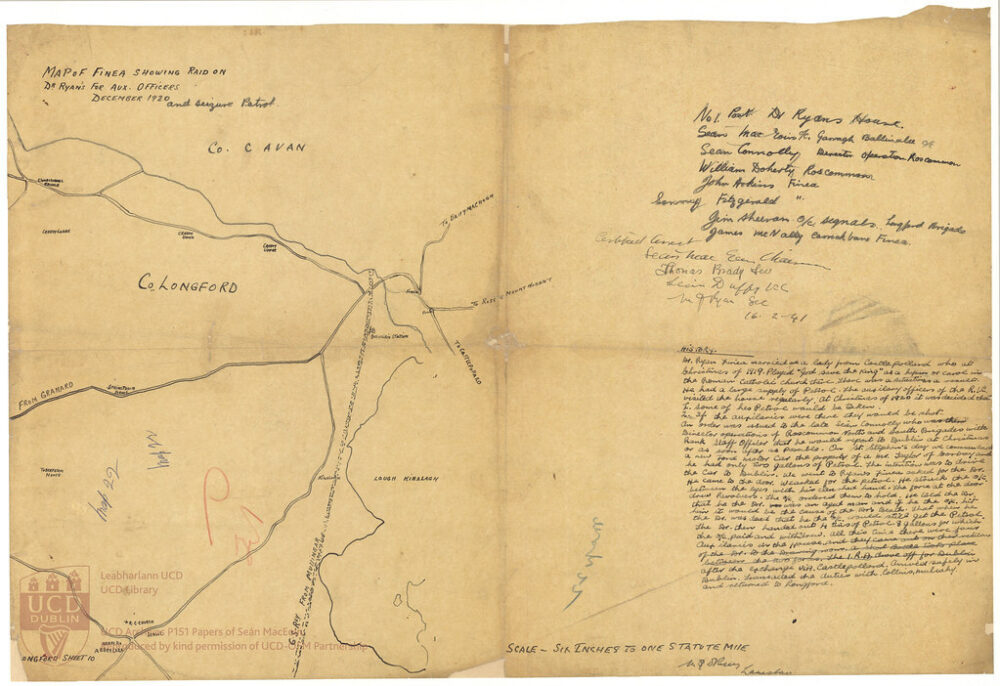 MAP OF FINEA SHOWING RAID ON
DR RYAN'S FOR AUX. OFFICERS
DECEMBER 1920 and seizure Petrol.
CO. CAVAN
CO. LONGFORD
TO
TO CASTLEPOLLARD
FROM GRANARD
LOUGH KINALAGH
FROM MULLINGAR
Map 22
LONGFORD SHEET 10
SCALE – SIX INCHES TO ONE STATUTE MILE
No 1 Post Dr Ryans House.
Sean Mac Eoin Ballinalee
Sean Connolly Director operation Roscommon
William Doherty Roscommon
John Adkins Finea
Fitzgerald "
Jim Sheeran O/C signals. Longford Brigade
James McNally Carrickbane Finea.
Certified Correct
Sean Mac Eoin Chairman
Thomas Brady Sec
Sean Duffy VC
M F Ryan Sec
16. 2-41
HISTORY.
Dr. Ryan Finea married a lady from Castlepollard who at
Christmas of 1919. Played "God save the King" as a hymn or carol in
the Roman Catholic church there. There was a
He had a large supply of Petrol. The auxiliary officers of the R.I.C.
visited the house regularly. At Christmas of 1920 it was decided that
1. some of his Petrol would be taken.
2. If the auxiliaries were there they would be shot.
An order was issued to the late Sean Connolly who was then
Director operations of Roscommon North and South Brigades with
Rank Staff Officer that he would report to Dublin at Christmas
or as soon after as possible. On St. Stephen's day we commandeered
a new Ford motor car the property of a Mr Taylor of and
he had only two gallons of Petrol. The intention was to drive
the car to Dublin. We went to Ryan's Finea asked for the Dr.
He came to the door. We asked for the petrol. He struck the O/C
between the eyes with his clenched hand. The force at the door
drew Revolvers. The O/C ordered them to hold. He told the Dr.
that he the Dr. was an aged man and if he the O/C hit
him it would be the cause of the Dr's death. That when he
the Dr. was dead that he the O/C would still get the Petrol.
The Dr. then handed out 4 tins of Petrol 8 gallons for which
the O/C paid and withdrew. All this time there were four
Auxiliaries in the House, and they
of the Dr. to the drawing room. a short battle took place
between the two forces. The I.R.A. drove off for Dublin
after the exchange via Castlepollard. Arrived safely in
Dublin. Transacted the duties with Collins, Mulcahy,
and returned to Longford.
Leabharlann UCD
UCD Library
UCD
DUBLIN
UCD Archives P151 Papers of Seán MacEoin
Reproduced by kind permission of UCD-OFM Partnership